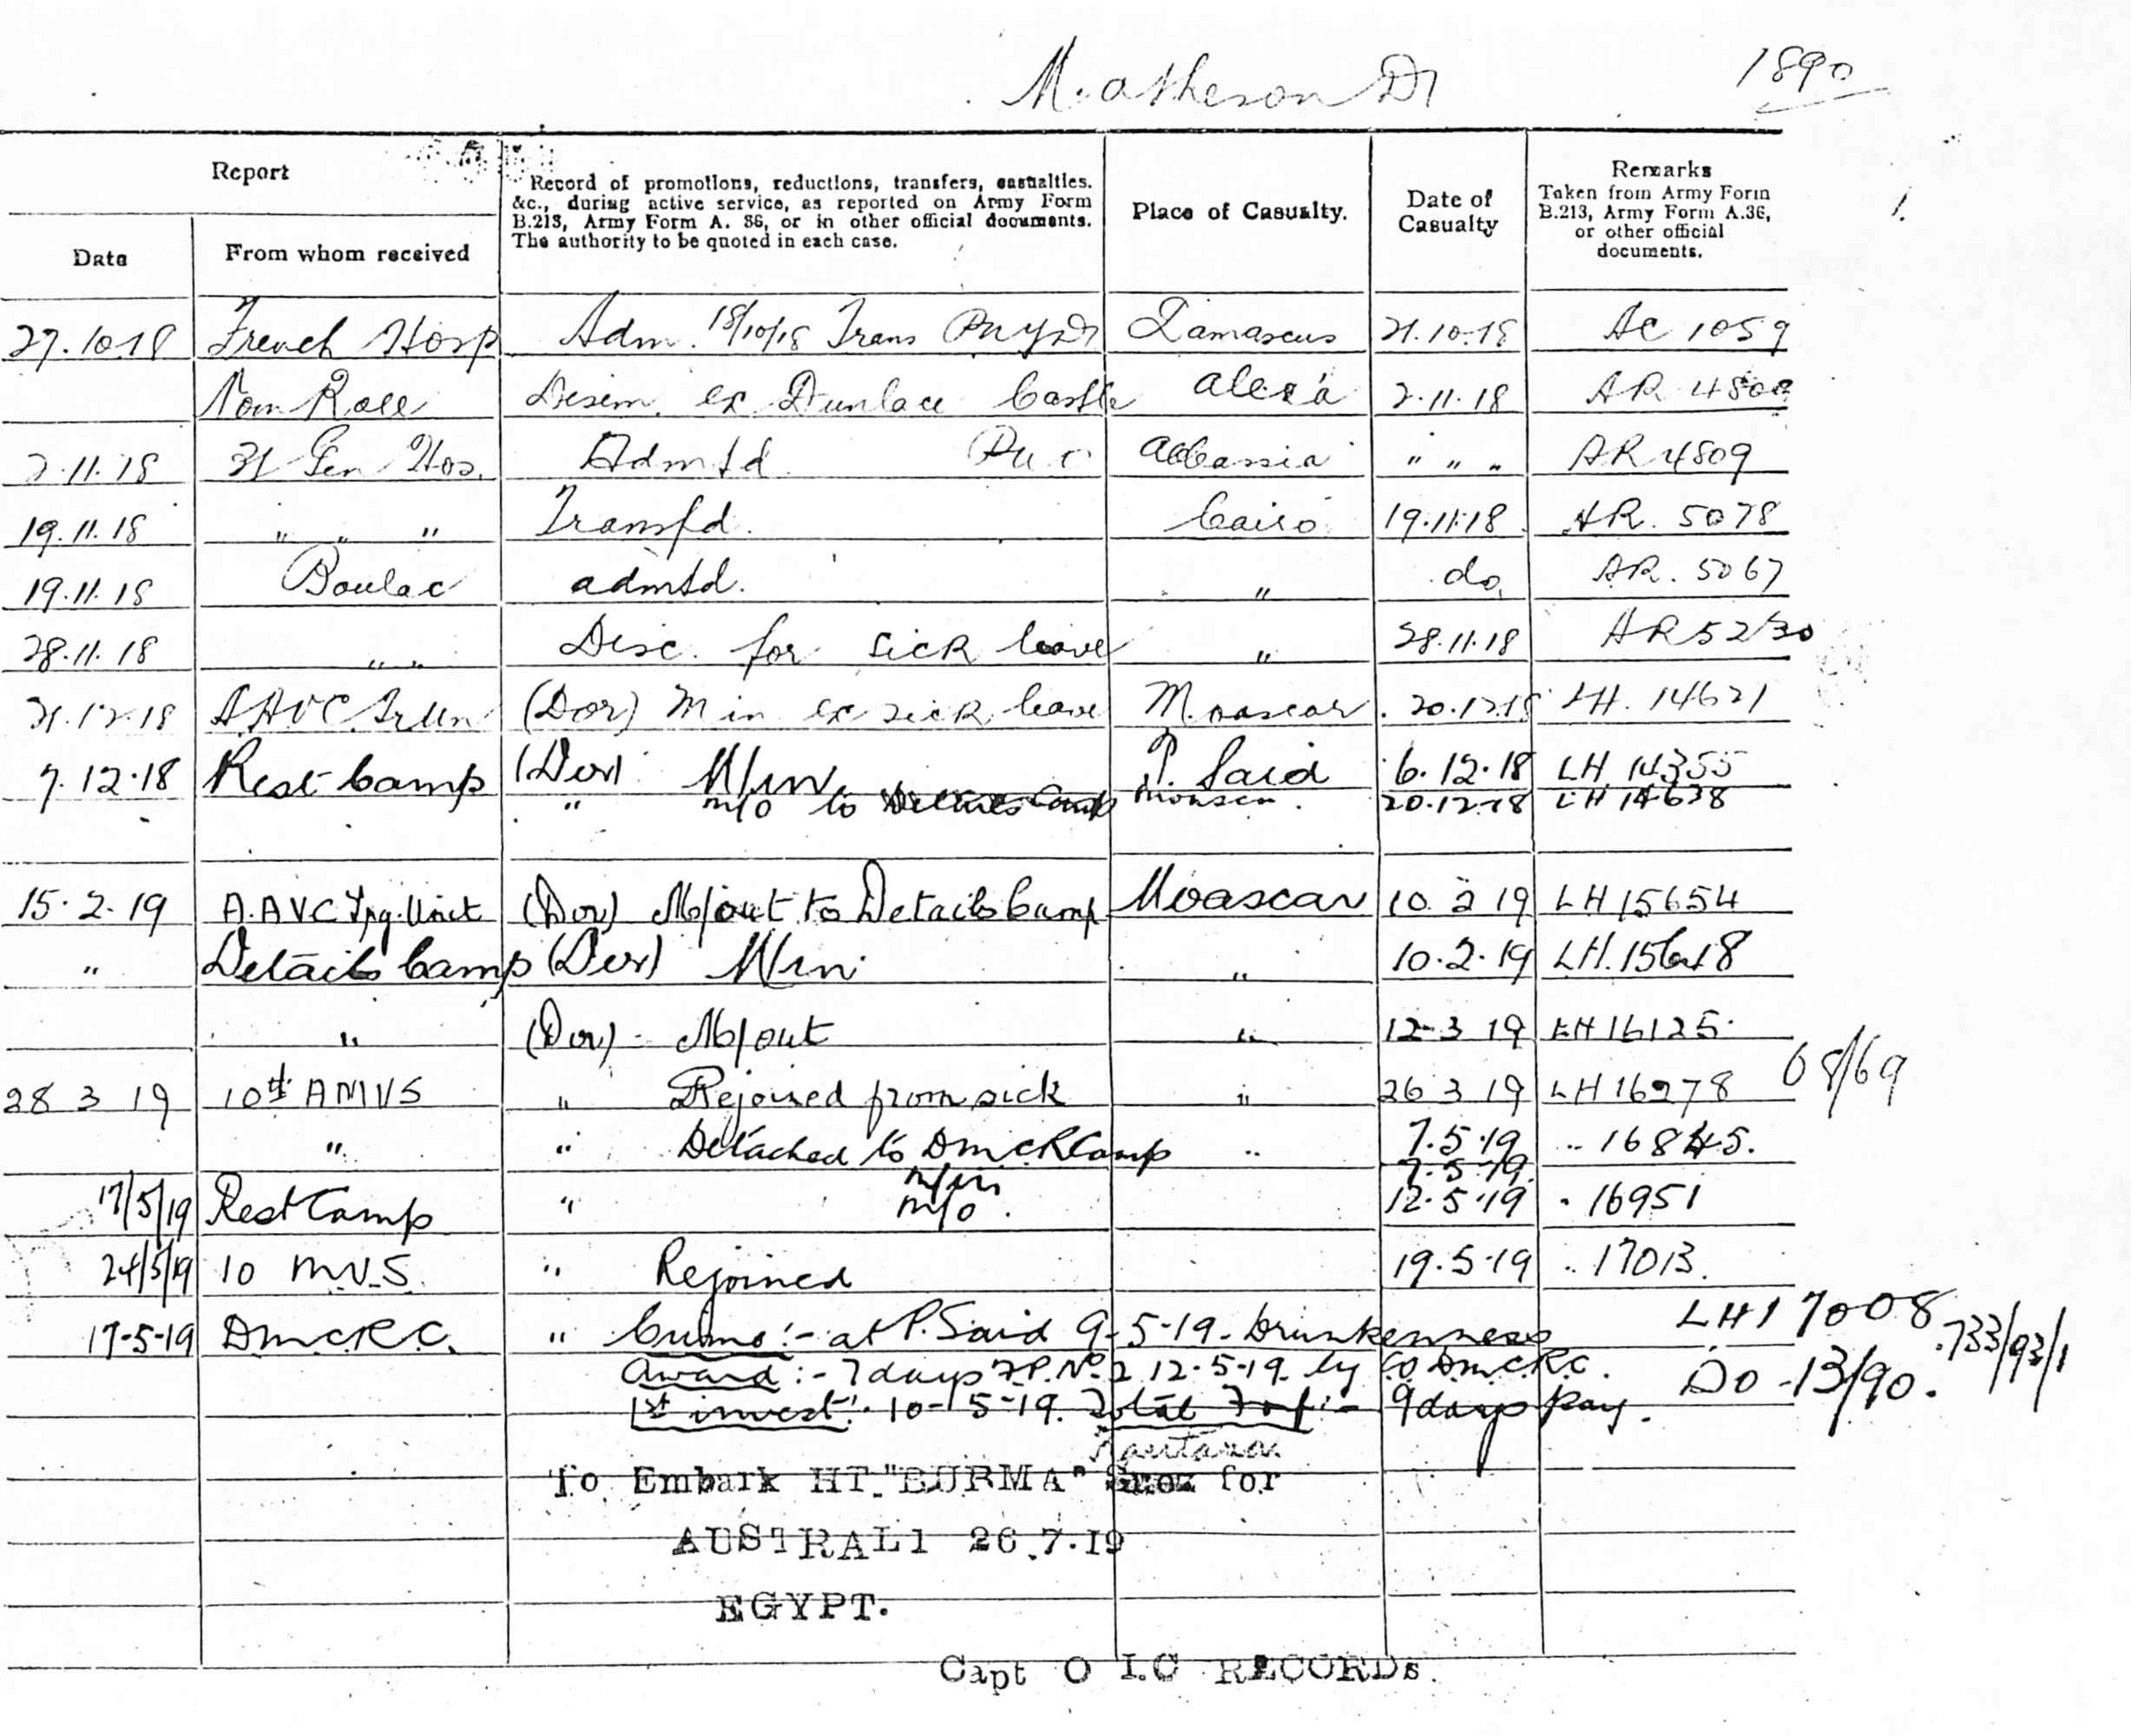 Matheson D
1890
Report
Record of promotions, reductions, transfers, casualties.
&c., during active service, as reported on Army Form
B.213, Army Form A. 36, or in other official documents.
The authority to be quoted in each case.
Place of Casualty.
Date of
Casualty
Remarks
Taken from Army Form
B.213, Army Form A.36,
or other official
documents.
Date
From whom received
27.10.18 French Hosp Adm. 18/10/18 Trans Damascus 21.10.18 AC 1059
Nom Roll Disem. ex Dunluce Castle Alexa 2.11.18 AR
2.11.18 31 Gen Hos. Admtd Abbassia " " " AR 4809
19.11.18 " " " Transfd. Cairo 19.11.18 AR. 5078
19.11.18 Boulac admtd. " do. AR. 5067
28.11.18 " " Disc. for sick leave " 28.11.18 AR 5230
21.12.18 AAVC (Dor) M in ex sick leave Moascar. 20.12.18 LH. 14621
7.12.18 Rest Camp (Dor) M/in P. Said 6.12.18 LH 14355
" m/o to 20.12.18 LH 14638
15.2.19 A.AVC Trg. Unit (Dor) M/out to Details Camp Moascar 10 2 19 LH 15654
" Details Camp (Dor) M/in " 10.2.19 LH.
" (Dor) - M/out " 12 3 19 LH 16125.
28 3 19 10th AMVS " Rejoined from sick " 26 3 19 LH 16278 68/69
" " Detached to DMCRCamp " 7.5.19 " 16845.
m/in 7.5.19
17/5/19 Rest Camp " m/o. 12.5.19 " 16951
24/5/19 10 M.V.S. " Rejoined 19.5.19 " 17013.
17-5-19 D.M.C.R.C. " Crime :- at P. Said 9-5-19- Drunkenness LH 17008 .733/93/1
Award :- 7 days F.P. No. 2 12-5-19. by C.O. D.M.C.R.C. DO -13/90.
1st invest :- 10-5-19. Total Forf :- 9 days pay.
Kantara
To Embark HT "BURMA" Suez for
AUSTRAL1 26.7.19
EGYPT.
Capt O I.C RECORDs.